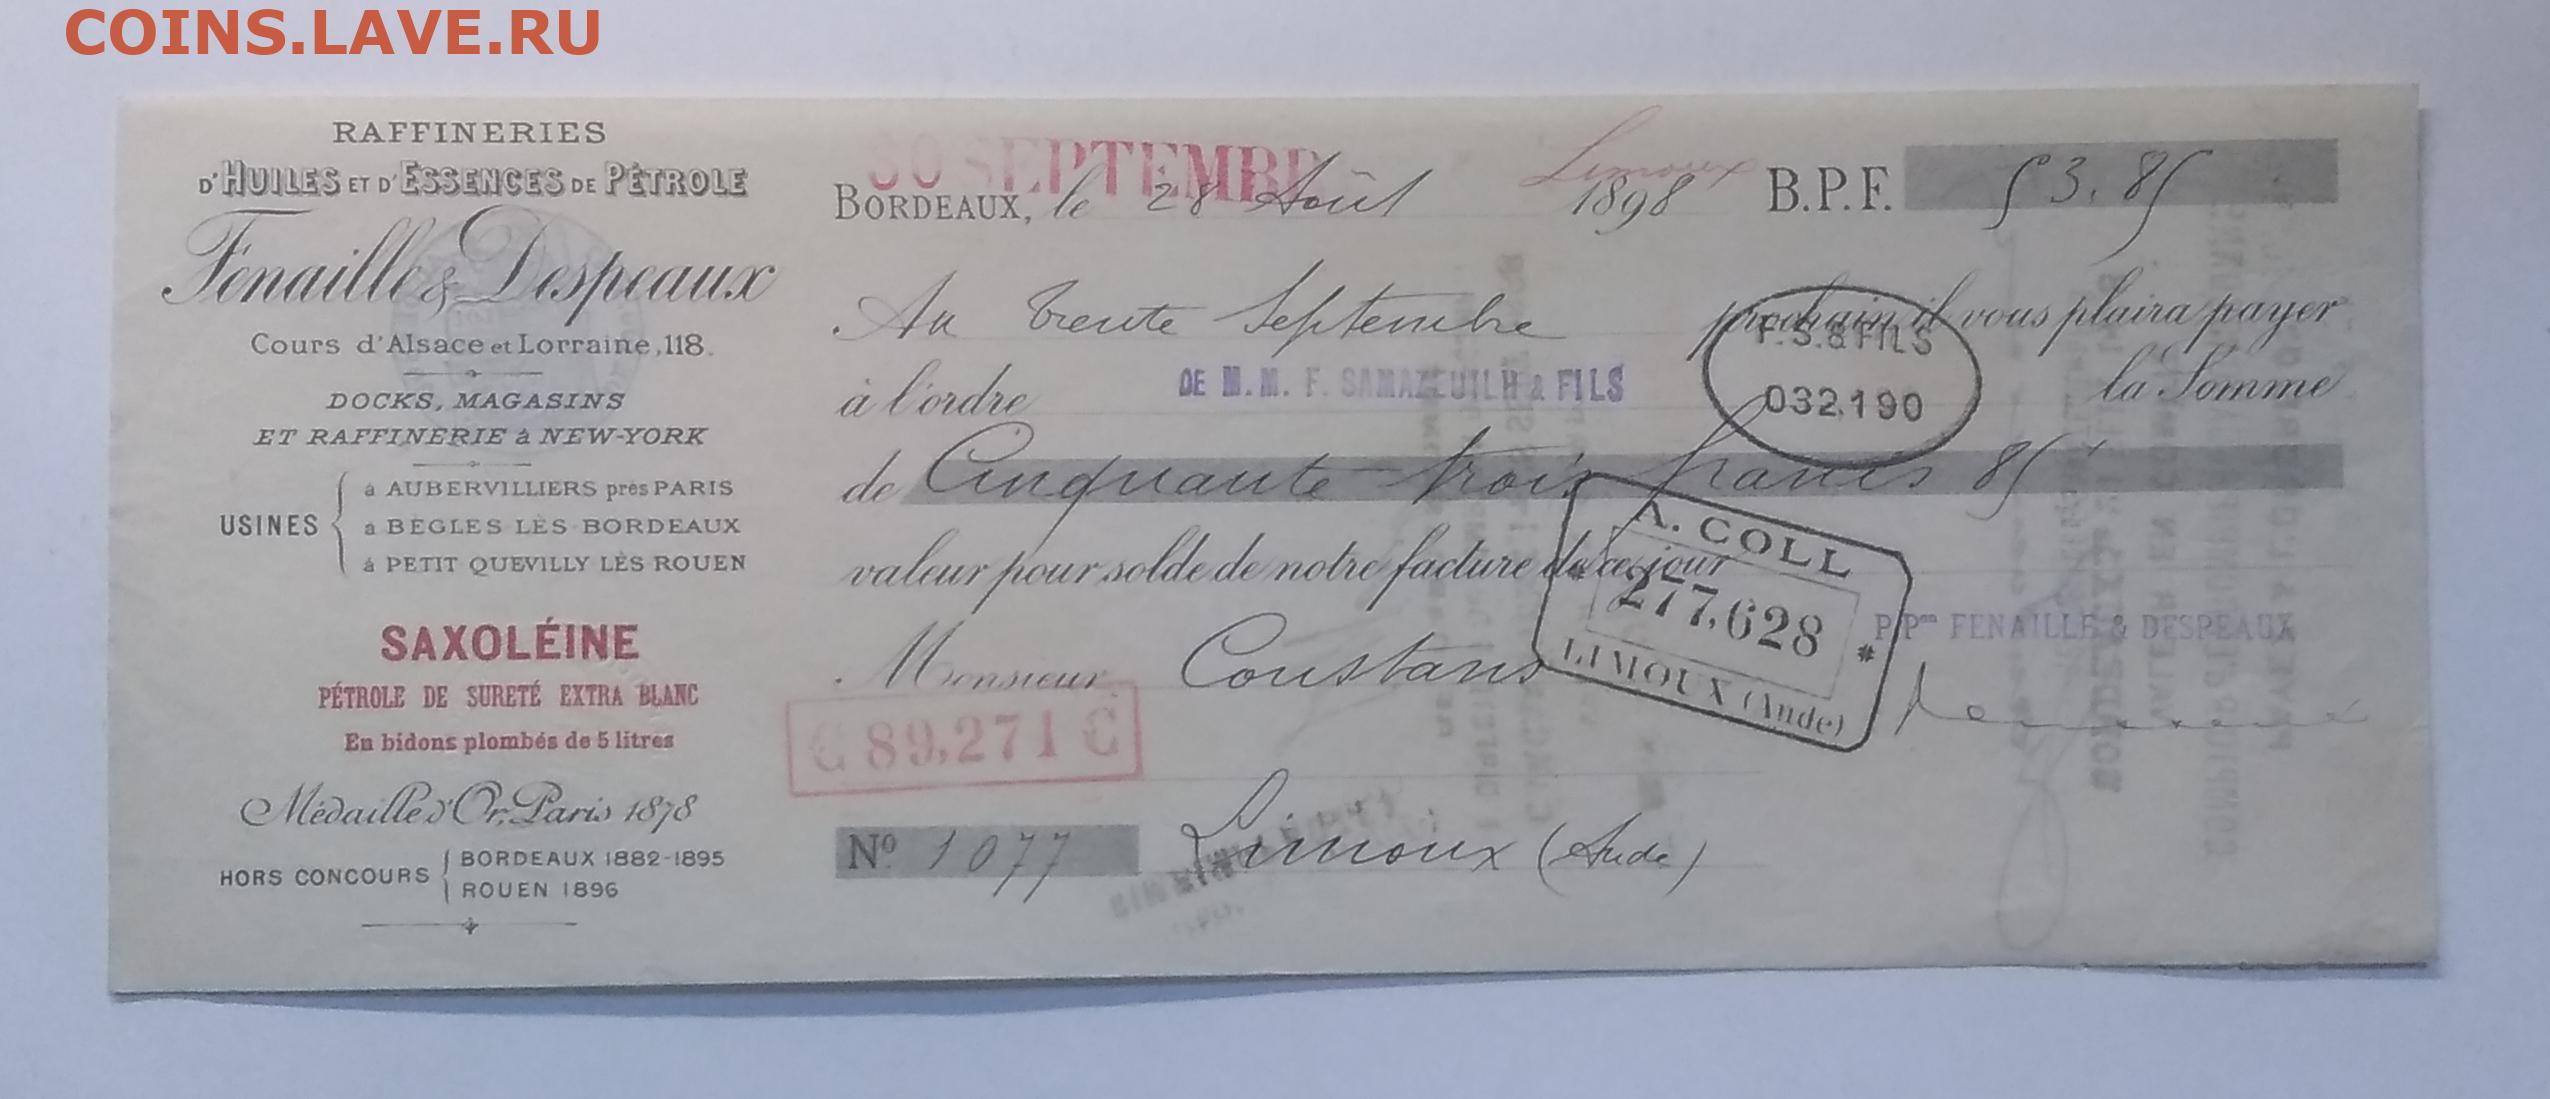 COINS.LAVE.RU
RAFFINERIES
D'HUILES ET D'ESSENCES DE PÉTROLE
Fenaille & Despeaux
Cours d'Alsace et Lorraine, 118.
DOCKS, MAGASINS
ET RAFFINERIE à NEW-YORK
USINES
à AUBERVILLIERS près PARIS
à BÈGLES LÈS BORDEAUX
à PETIT QUEVILLY LÈS ROUEN
SAXOLÉINE
PÉTROLE DE SURETÉ EXTRA BLANC
En bidons plombés de 5 litres
Médaille d'Or, Paris 1878
HORS CONCOURS
BORDEAUX 1882-1895
ROUEN 1896
30 SEPTEMBRE
Limoux
BORDEAUX, le 28 Août 1898 B.P.F. 53.85
Au trente Septembre prochain il vous plaira payer
à l'ordre DE M.M. F. SAMAZEUILH & FILS la Somme
F.S. & FILS
032.190
de Cinquante trois francs 85
valeur pour solde de notre facture de ce jour
A. COLL
277.628
LIMOUX (Aude)
P. Pon FENAILLE & DESPEAUX
Monsieur Constans
C 89,271 C
Nº 1077 Limoux (Aude)